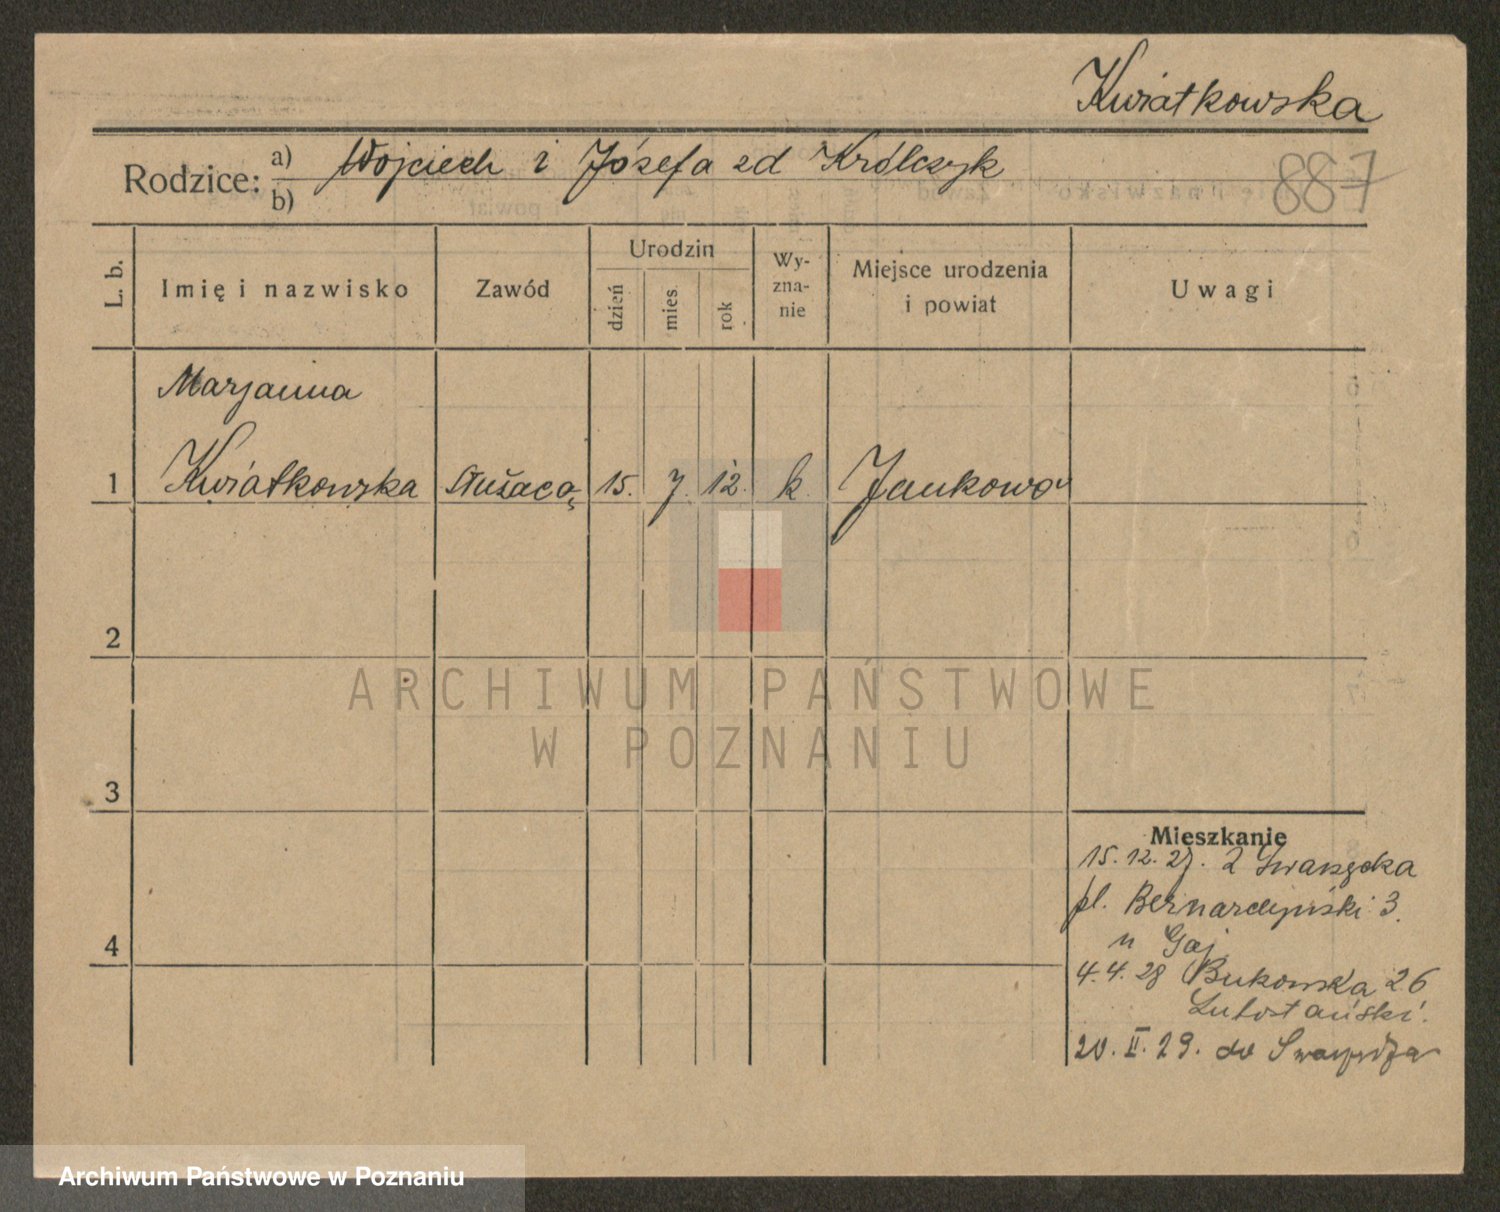 Kwiatkowska
Rodzice: a) Wojciech i Józefa zd Królczyk
b)
887
L. b.
Imię i nazwisko
Zawód
Urodzin
dzień
mies
rok
Wy-
zna-
nie
Miejsce urodzenia
i powiat
Uwagi
Marjanna
1 Kwiatkowska służącą 15. 7. 12. k. Jankowo
2
3
4
Mieszkanie
15. 12. 27. z
pl. Bernardyński 3.
u Gaj
4. 4. 28 Bukowska 26
Lutostański.
20. II. 29. do
ARCHIWUM PAŃSTWOWE
W POZNANIU
Archiwum Państwowe w Poznaniu